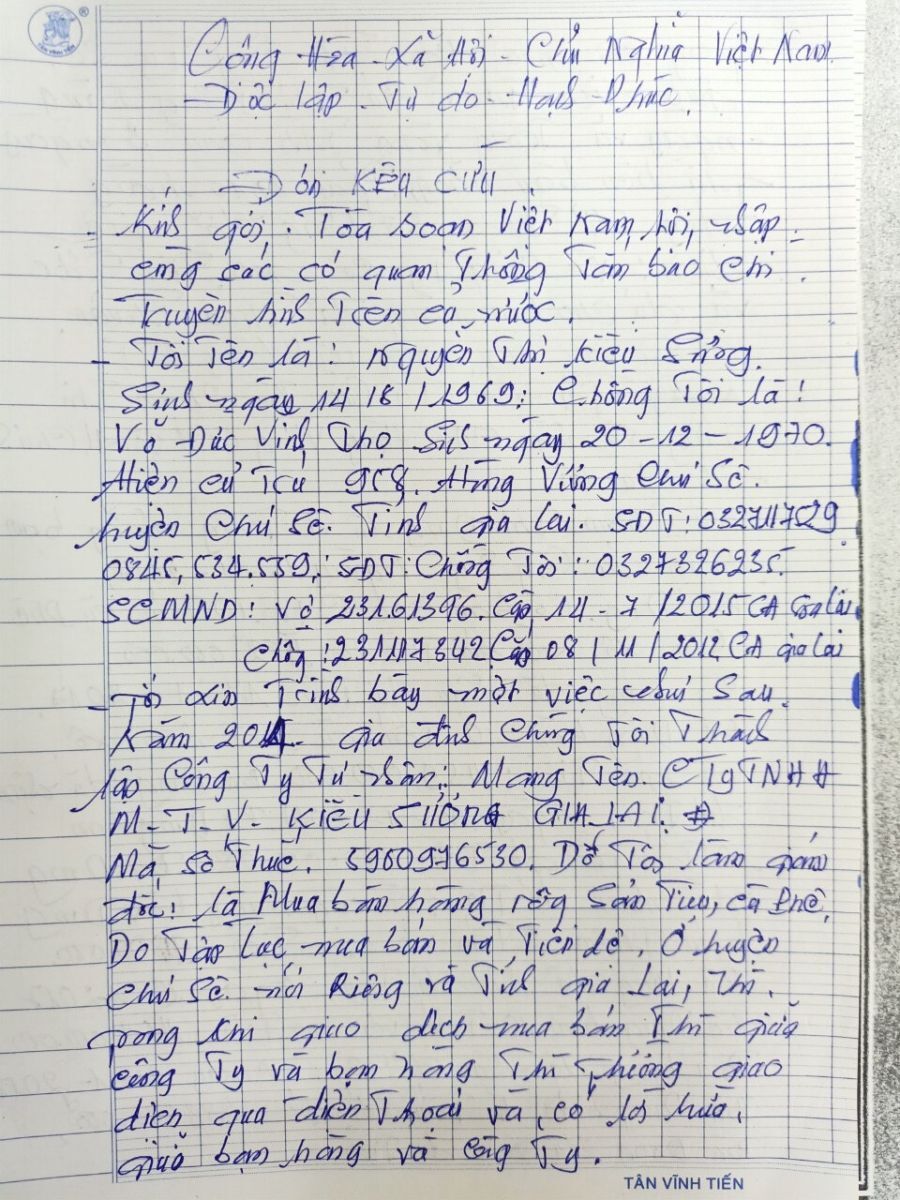 TÂN VĨNH TIẾN
Cộng Hòa Xã Hội Chủ Nghĩa Việt Nam
Độc lập - Tự do - Hạnh Phúc
Đơn KÊU CỨU
Kính gởi. Tòa soạn Việt Nam hội nhập
cùng các cơ quan Thông Tấn báo chí
Truyền hình Trên cả nước.
- Tôi Tên là: Nguyễn Thị Kiều Sương
Sinh ngày 14/8/1969: Chồng Tôi là!
Võ Đức Vinh Thọ Sinh ngày 20-12-1970.
Hiện cư trú 958. Hùng Vương Chư Sê.
huyện Chư Sê. Tỉnh gia lai. SĐT: 0327117529
0845,534.559,: SĐT: Chồng Tôi: 0327326235
SCMND: Vợ 23161396. Cấp 14-7/2015 CA Gia Lai
Chồng: 231117342 Cấp 08/11/2012 CA gia lai
- Tôi xin Trình bày một việc như sau.
Năm 2014 gia đình Chúng Tôi Thành
lập Công Ty Tư nhân: Mang Tên. CTyTNHH
M-T-V- KIỀU SƯƠNG GIA LAI.
Mã số Thuế. 5900976530. Do Tôi làm giám
đốc: là Mua bán hàng nông Sản Tiêu, cà Phê,
Do Tập Tục mua bán và Tiền đề. Ở huyện
Chư Sê nói Riêng và Tỉnh gia Lai, Thì.
Trong khi giao dịch mua bán Thì giữa
Công Ty và bạn hàng Thì Thường giao
diện qua điện Thoại và có lời hứa,
giữa bạn hàng và Công Ty.
TÂN VĨNH TIẾN